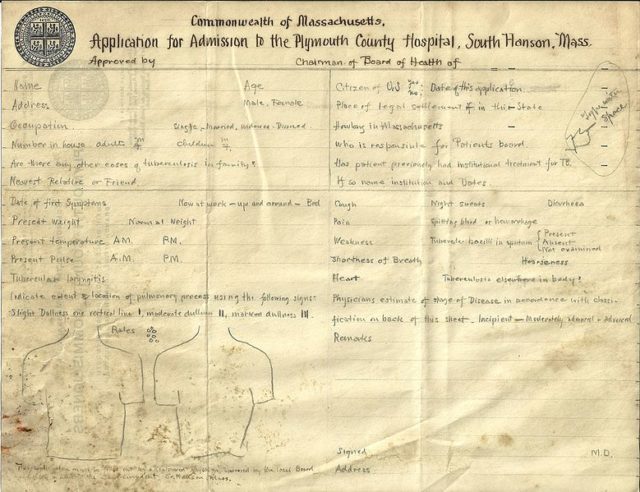 Commonwealth of Massachusetts,
Application for Admission to the Plymouth County Hospital, South Hanson, Mass.
Approved by Chairman of Board of Health of
Name Age
Address Male, Female
Occupation Single - Married, Widowed - Divorced
Number in house adults M F children M F
Are there any other cases of tuberculosis in family?
Nearest Relative or Friend
Citizen of U.S. yes no Date of this application
Place of legal settlement if in this State
How long in Massachusetts
Who is responsible for Patients board
Has patient previously had institutional treatment for TB.
If so name institution and Dates.
Typewriter Space
Date of first Symptoms Now at work - up and around - Bed
Present Weight Normal Weight
Present temperature A.M. P.M.
Present Pulse A.M. P.M.
Tubercular laryngitis
Indicate extent & location of pulmonary process using the following signs
Slight Dullness one vertical line I, moderate dullness II, marked dullness III.
Rales
Cough Night Sweats Diarrhoea
Pain Spitting blood or hemorrhage
Weakness Tubercle bacilli in sputum Present Absent Not examined
Shortness of Breath Hoarseness
Heart Tuberculosis elsewhere in body?
Physicians estimate of stage of Disease in accordance with classi-
fication on back of this sheet. Incipient - Moderately advanced - Advanced
Remarks
Signed M.D.
Address